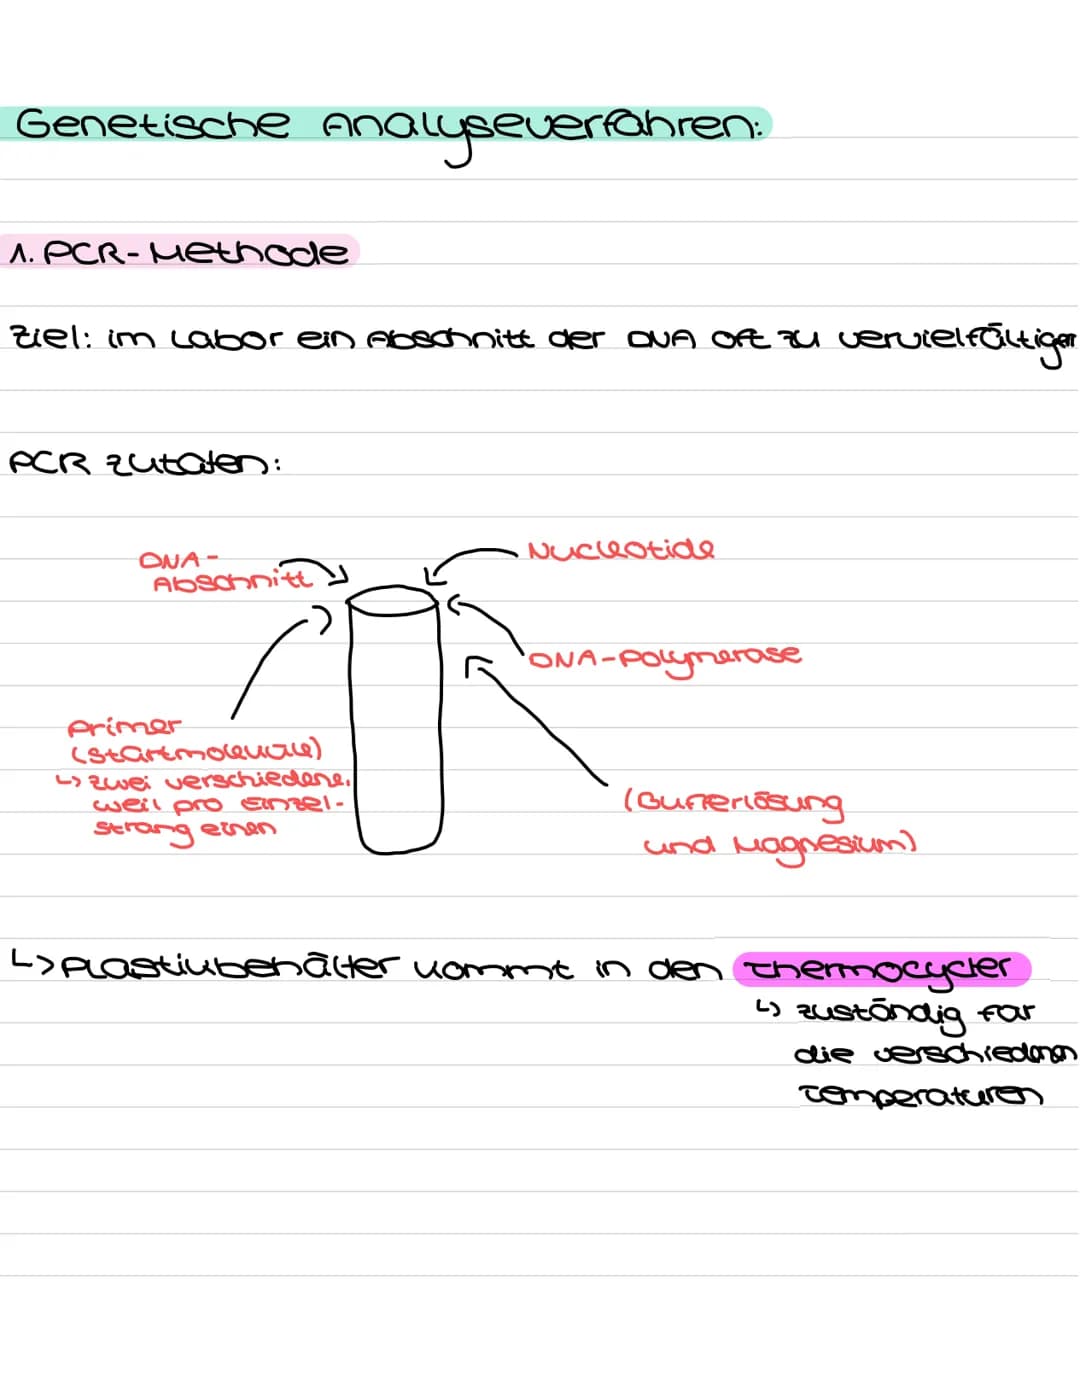 Genetische Analyseverfahren:
1. PCR-Methode
Ziel: im Labor ein Abschnitt der DNA oft zu vervielfältigen
PCR Zutaten:
DNA-
Abschnitt
Nucleotide
DNA-Polymerase
Primer
(Startmoleküle)
↳ zwei verschiedene,
weil pro Einzel-
strang einen
(Bufferlösung
und Magnesium)
↳ Plastikbehälter kommt in den Thermocycler
↳ zuständig für
die verschiedenen
Temperaturen